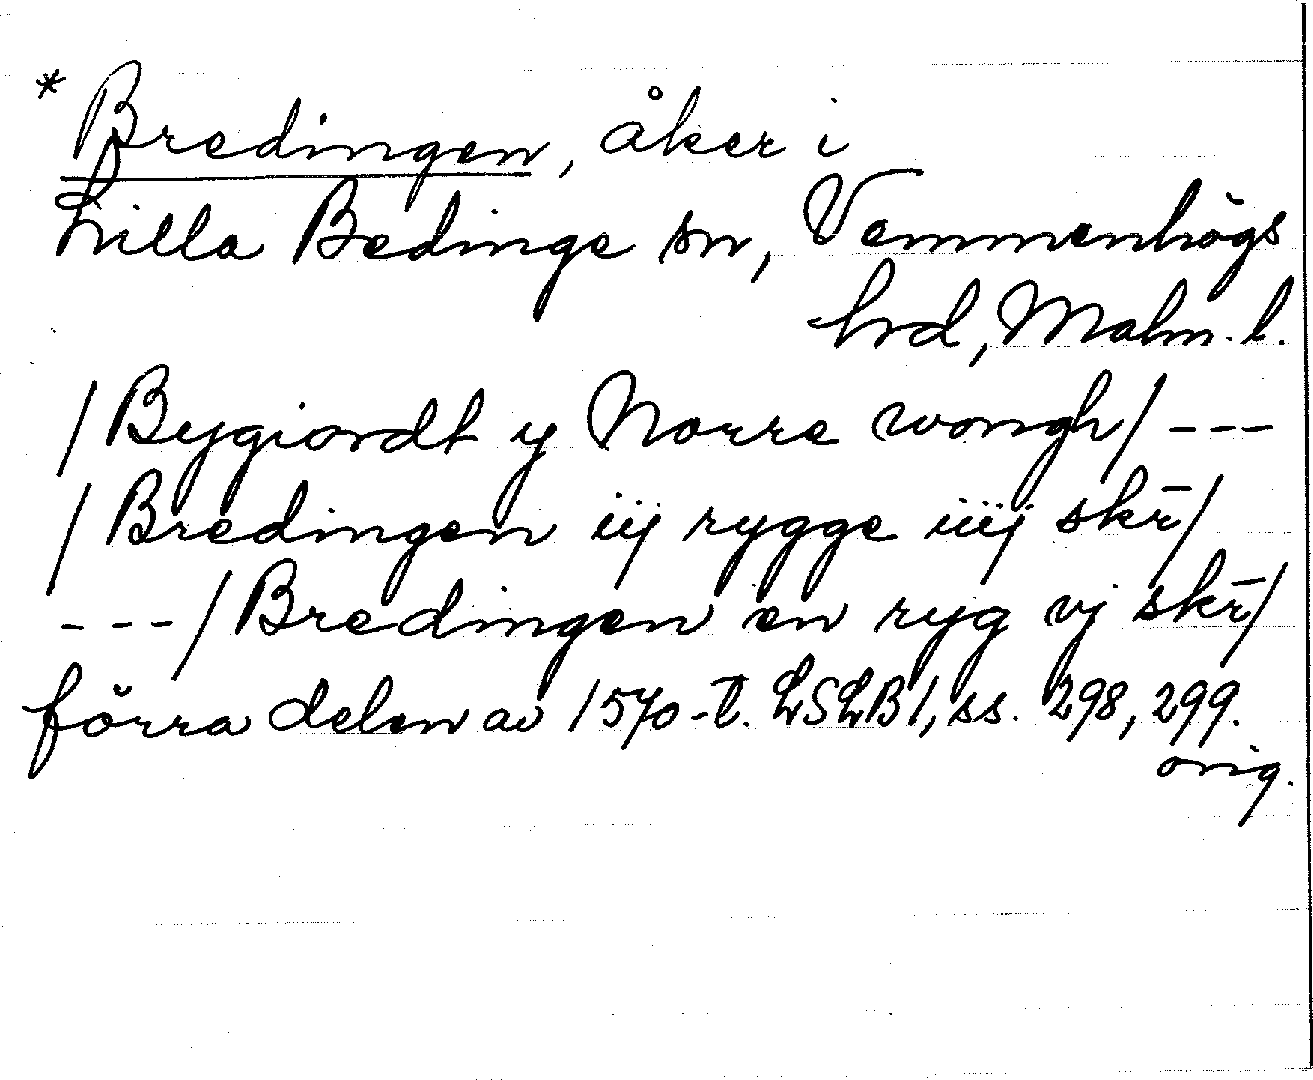 * Bredingen, åker i
Lilla Bedinge sn, Vemmenhögs
hrd, Malm. l.
/ Bygiordt y Norre wongh / ---
/ Bredingen iij rygge iiij skr̄ /
--- / Bredingen en ryg vj skr̄ /
förra delen av 1570-t. LSLB 1, ss. 298, 299.
orig.